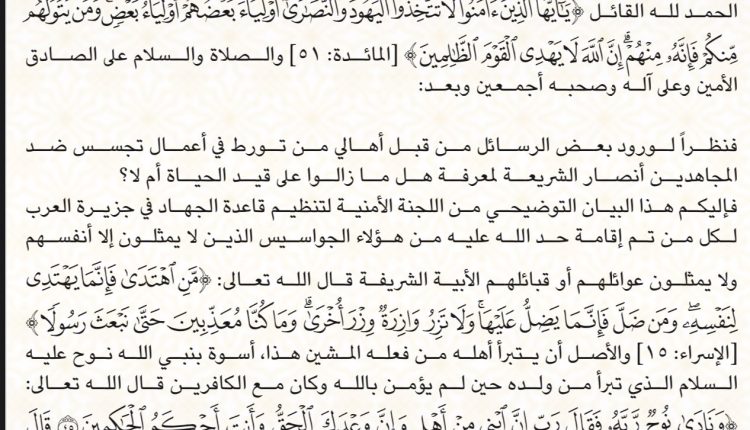 الحمد لله القائل ﴿يَٰٓأَيُّهَا ٱلَّذِينَ ءَامَنُوا۟ لَا تَتَّخِذُوا۟ ٱلْيَهُودَ وَٱلنَّصَٰرَىٰٓ أَوْلِيَآءَ بَعْضُهُمْ أَوْلِيَآءُ بَعْضٍ وَمَن يَتَوَلَّهُم
مِّنكُمْ فَإِنَّهُۥ مِنْهُمْ إِنَّ ٱللَّهَ لَا يَهْدِى ٱلْقَوْمَ ٱلظَّٰلِمِينَ﴾ [المائدة: ٥١] والصلاة والسلام على الصادق
الأمين وعلى آله وصحبه أجمعين وبعد:
فنظراً لورود بعض الرسائل من قبل أهالي من تورط في أعمال تجسس ضد
المجاهدين أنصار الشريعة لمعرفة هل ما زالوا على قيد الحياة أم لا؟
فإليكم هذا البيان التوضيحي من اللجنة الأمنية لتنظيم قاعدة الجهاد في جزيرة العرب
لكل من تم إقامة حد الله عليه من هؤلاء الجواسيس الذين لا يمثلون إلا أنفسهم
ولا يمثلون عوائلهم أو قبائلهم الأبية الشريفة قال الله تعالى: ﴿مَّنِ ٱهْتَدَىٰ فَإِنَّمَا يَهْتَدِى
لِنَفْسِهِۦ وَمَن ضَلَّ فَإِنَّمَا يَضِلُّ عَلَيْهَا وَلَا تَزِرُ وَازِرَةٌ وِزْرَ أُخْرَىٰ وَمَا كُنَّا مُعَذِّبِينَ حَتَّىٰ نَبْعَثَ رَسُولًا﴾
[الإسراء: ١٥] والأصل أن يتبرأ أهله من فعله المشين هذا، أسوة بنبي الله نوح عليه
السلام الذي تبرأ من ولده حين لم يؤمن بالله وكان مع الكافرين قال الله تعالى:
﴿وَنَادَىٰ نُوحٌ رَّبَّهُۥ فَقَالَ رَبِّ إِنَّ ٱبْنِى مِنْ أَهْلِى وَإِنَّ وَعْدَكَ ٱلْحَقُّ وَأَنتَ أَحْكَمُ ٱلْحَٰكِمِينَ ۝ قَالَ